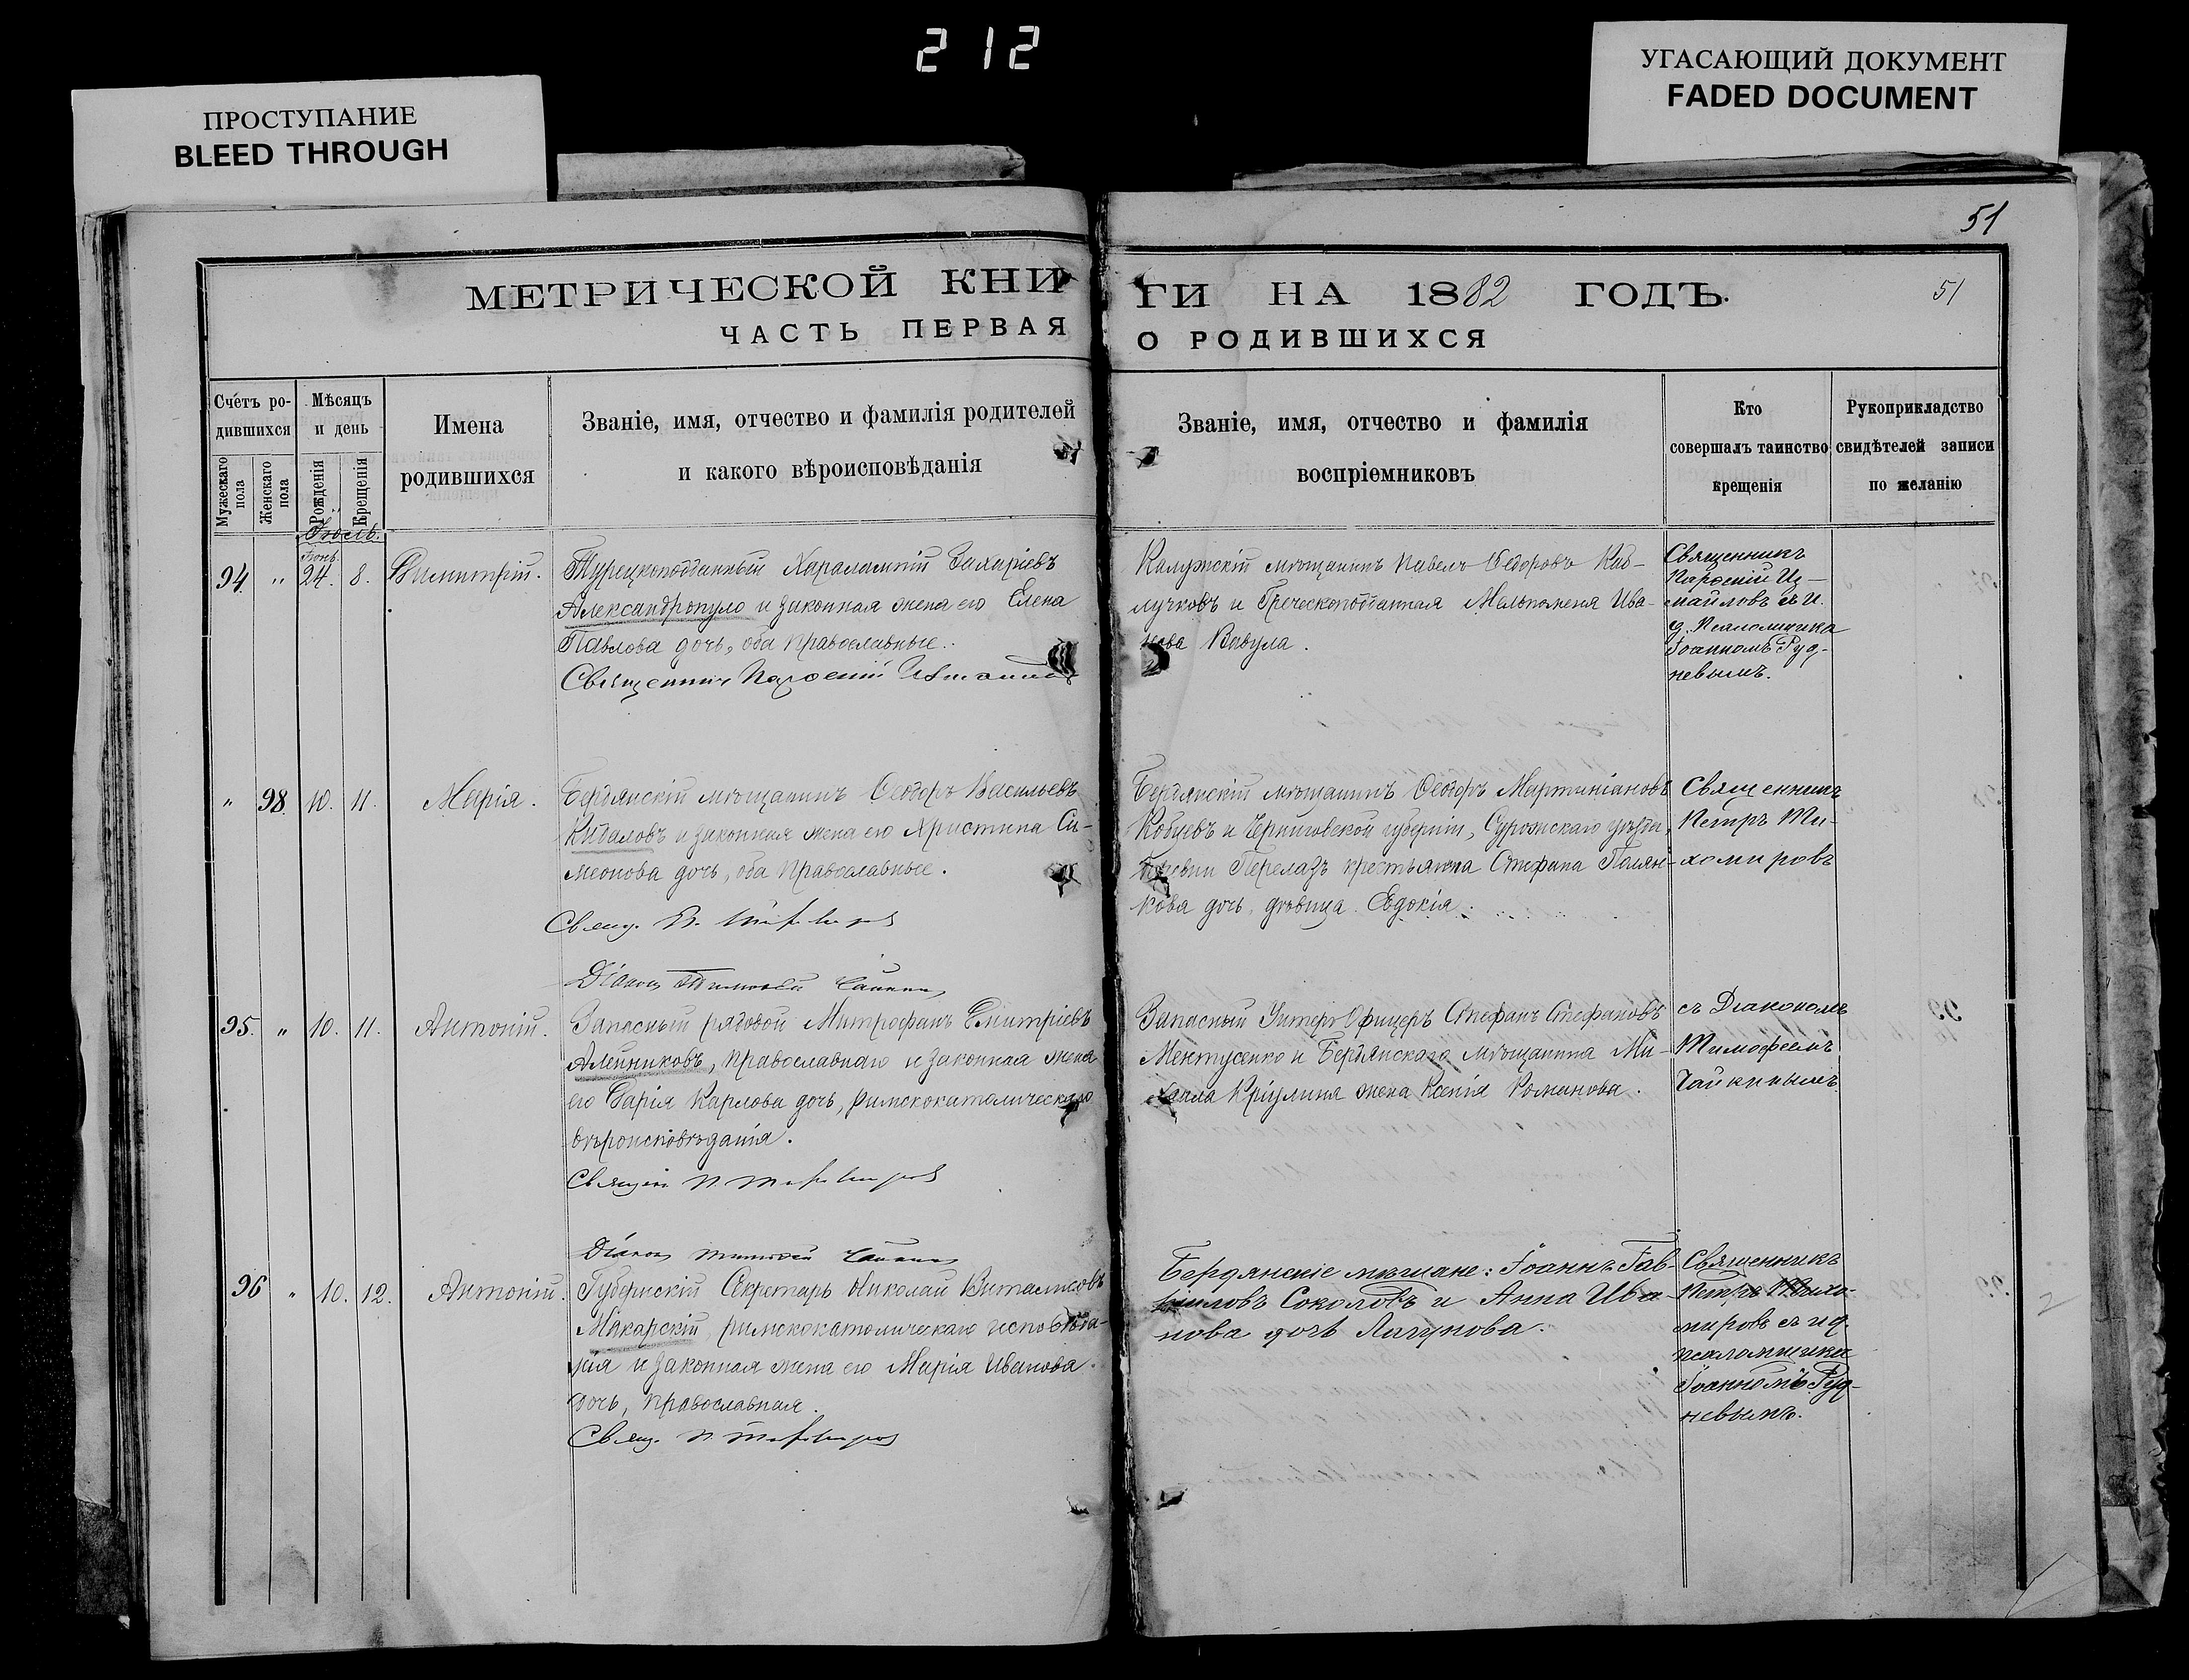 212
ПРОСТУПАНИЕ
BLEED THROUGH
УГАСАЮЩИЙ ДОКУМЕНТ
FADED DOCUMENT
51
МЕТРИЧЕСКОЙ КНИ
ЧАСТЬ ПЕРВАЯ
ГИ НА 1882 ГОДЪ.
51
О РОДИВШИХСЯ
Счетъ ро-
дившихся
Мужескаго
пола
Женскаго
пола
Мѣсяцъ
и день
Рожденія
Крещенія
Имена
родившихся
Званіе, имя, отчество и фамилія родителей
и какого вѣроисповѣданія
Званіе, имя, отчество и фамилія
воспріемниковъ
Кто
совершалъ таинство
крещенія
Рукоприкладство
свидѣтелей записи
по желанію
Іюль.
Іюнь
94. " 24. 8. Димитрій.
Турецкоподданный Харалампій Захаріевъ
Александропуло и законная жена его Елена
Павлова дочь, оба православные.
Священникъ Парѳеній
Калужскій мѣщанинъ Павелъ Ѳедоровъ Кав-
лучковъ и Греческоподданная Мельпоменя Ива-
нова Вавула.
Священникъ
Парѳеній Из-
майловъ съ и.
д. Псаломщика
Іоанномъ Руд-
невымъ.
" 98. 10. 11. Марія.
Бердянскій мѣщанинъ Ѳеодоръ Васильевъ
Кидаловъ и законная жена его Христина Си-
меонова дочь, оба православные.
Свящ. П. Тихомировъ
Діаконъ Тимоѳей Чайкинъ
Бердянскій мѣщанинъ Ѳеодоръ Мартиніановъ
Кобцевъ и Черниговской губерніи, Суражскаго уѣзда,
деревни Перелазъ крестьянина Стефана Полян-
кова дочь, дѣвица Евдокія.
Священникъ
Петръ Ти-
хомировъ
95. " 10. 11. Антоній.
Запасный рядовой Митрофанъ Дмитріевъ
Алейниковъ, православнаго и законная жена
его Дарія Карлова дочь, римскокатолическаго
вѣроисповѣданія.
Священ. П. Тихомировъ
Діаконъ Тимоѳей Чайкинъ
Запасный Унтеръ Офицеръ Стефанъ Стефановъ
Ментусенко и Бердянскаго мѣщанина Ми-
хаила Кріулина жена Ксенія Романова.
съ Діакономъ
Тимоѳеемъ
Чайкинымъ.
96 " 10. 12. Антоній.
Губернскій Секретарь Николай Виталисовъ
Макарскій, римскокатолическаго исповѣда-
нія и законная жена его Марія Иванова
дочь, православная.
Свящ. П. Тихомировъ
Бердянскіе мѣщане: Іоаннъ Гав-
риловъ Соколовъ и Анна Ива-
нова дочь Лагунова.
Священникъ
Петръ Тихо-
мировъ съ и.д.
псаломщика
Іоанномъ Руд-
невымъ.
2